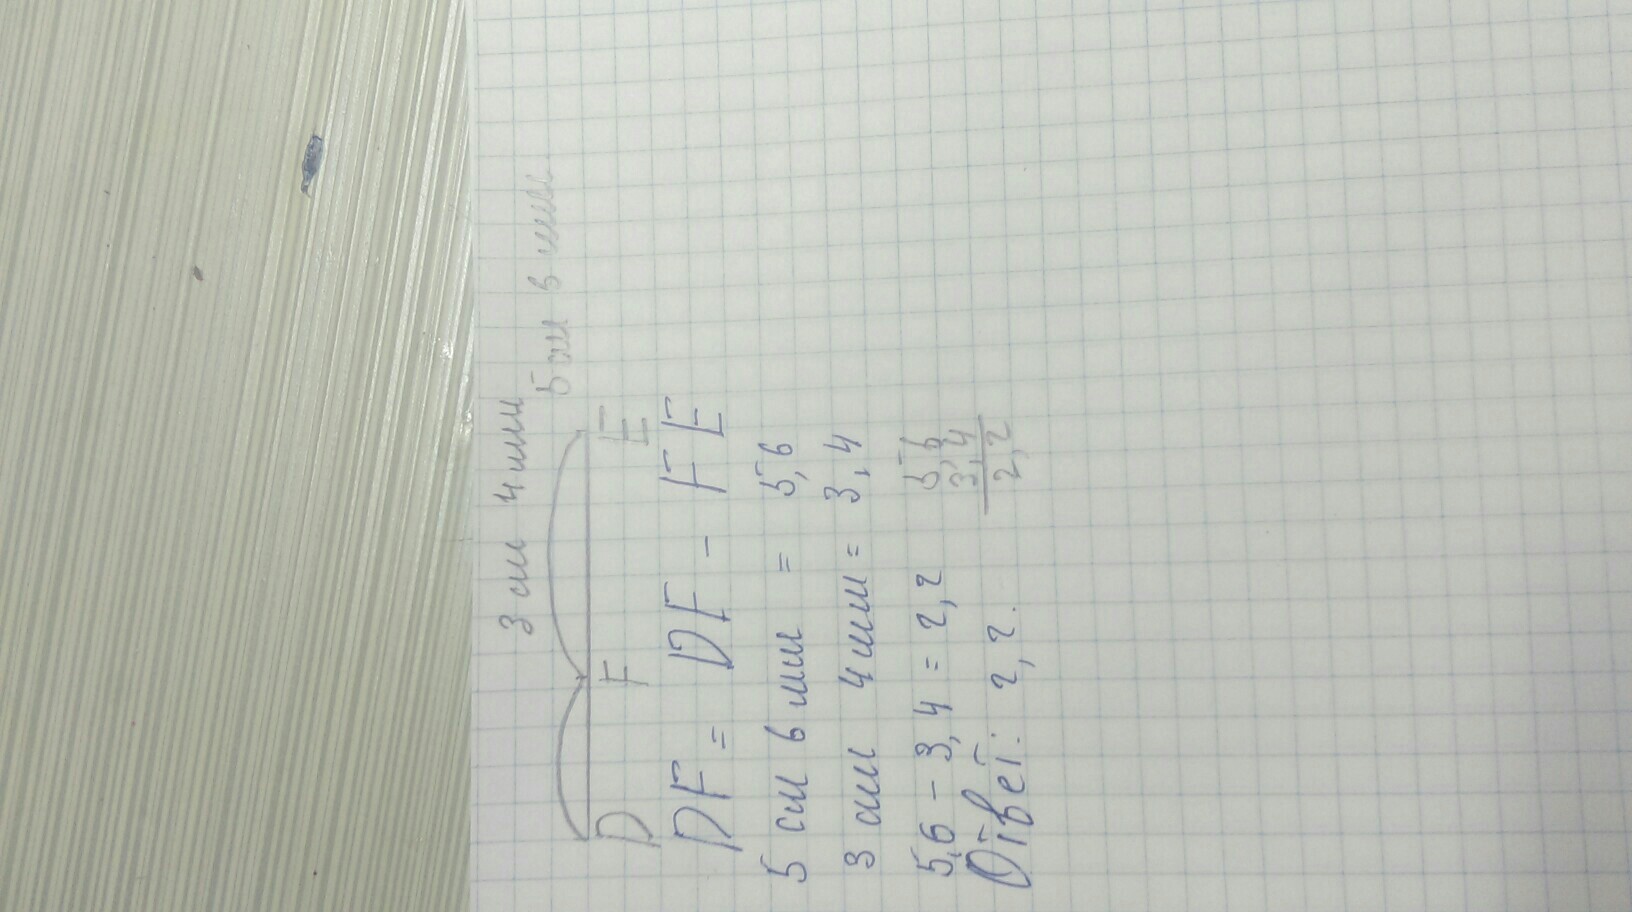 3 см 4 мм
5 см 6 мм
D F E
DF = DF - FE
5 см 6 мм = 5,6
3 см 4 мм = 3,4
5,6 - 3,4 = 2,2
5,6
3,4
2,2
Ответ: 2,2.